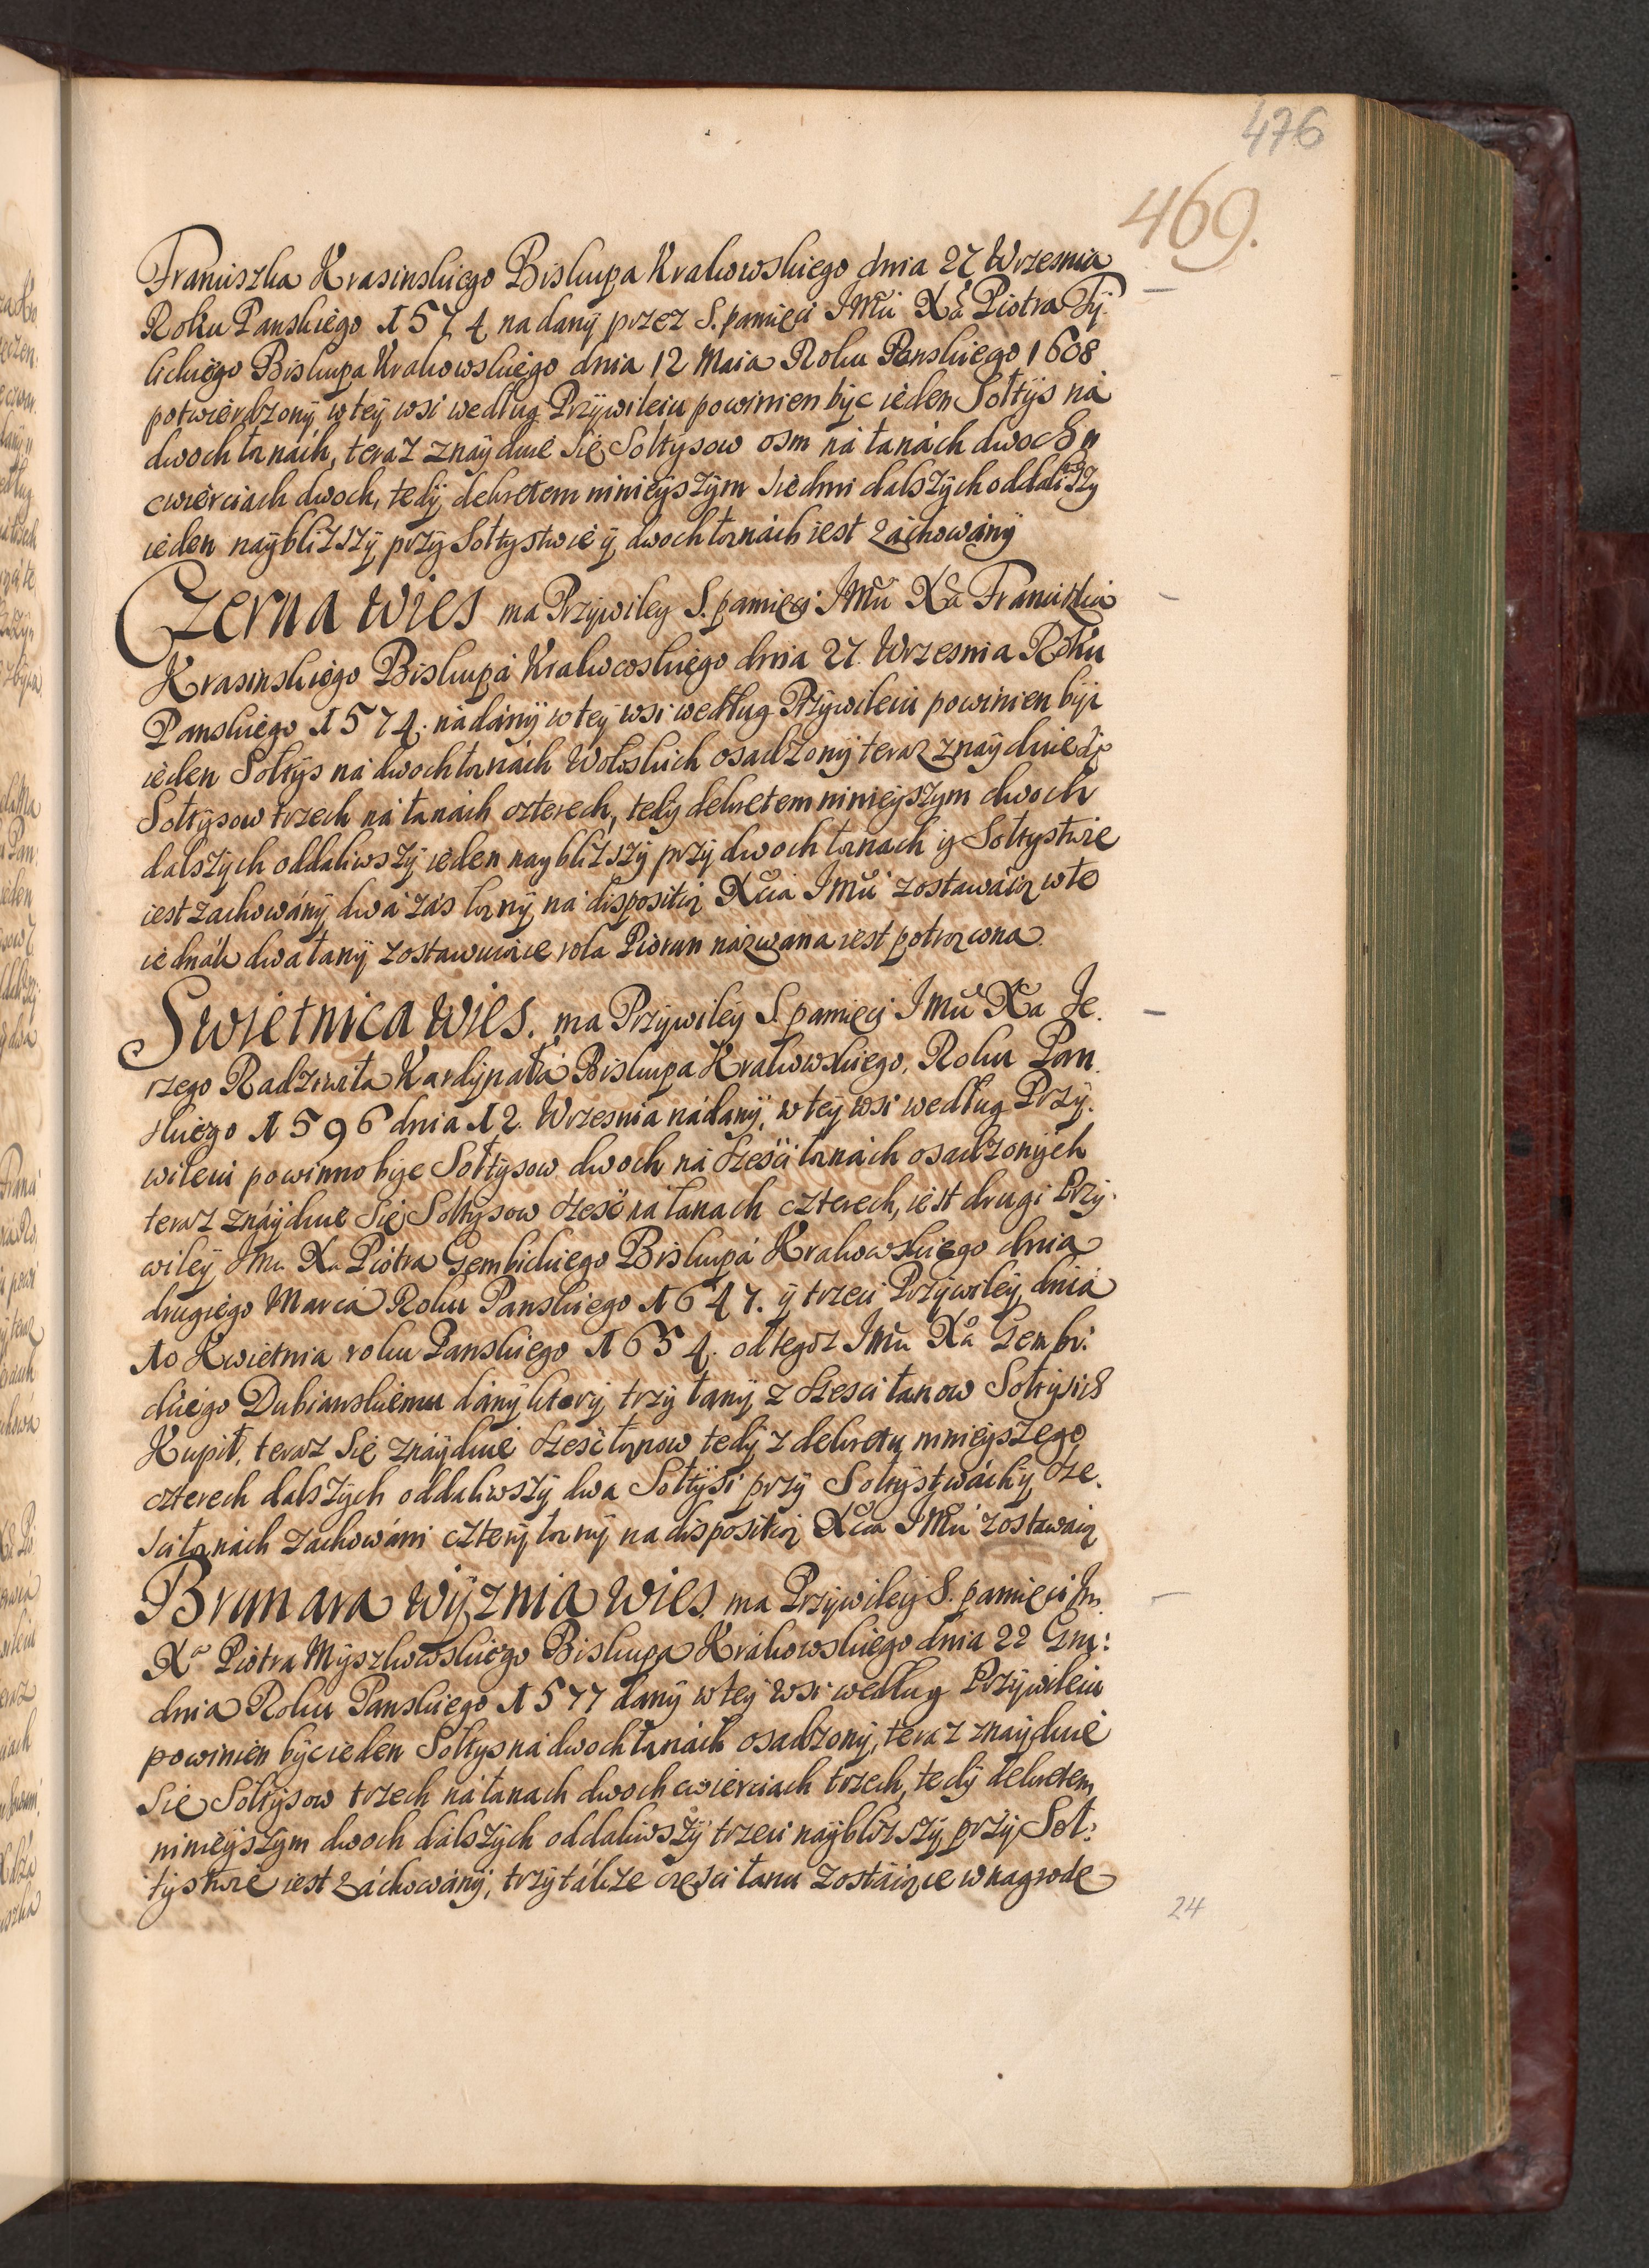 476
469.
Franciszka Krasinskiego Biskupa Krakowskiego dnia 27 Wrzesnia
Roku Panskiego 1574 nadany przez S. pamięci JMci Xa Piotra Ty-
lickiego Biskupa Krakowskiego dnia 12 Maia Roku Panskiego 1608
potwierdzony, w tey wsi według Przywileiu powinien byc ieden Sołtys na
dwoch łanach, teraz znayduie Się Sołtysow osm na łanach dwoch y
cwierciach dwoch, tedy dekretem ninieyszym siedmi dalszych oddaliwszy
ieden naybliższy przy Sołtystwie y dwoch łanach iest zachowany
Czerna Wies ma Przywiley S. pamięci JMci Xa Franciszka
Krasinskiego Biskupa Krakowskiego dnia 27. Wrzesnia Roku
Panskiego 1574. nadany w tey wsi według Przywileiu powinien byc
ieden Sołtys na dwoch łanach Wołoskich osadzony teraz znayduie się
Sołtysow trzech na łanach czterech, tedy dekretem ninieyszym dwoch
dalszych oddaliwszy ieden naybliższy przy dwoch łanach y Sołtystwie
iest zachowany, dwa zas łany na dispositią Xcia JMci zostawaią w te
iednak dwa łany zostawuiące rola Pioran nazwana iest potrącona.
Swietnica Wies. ma Przywiley S. pamięci JMci Xa Je-
rzego Radziwiła Kardynała Biskupa Krakowskiego, Roku Pan-
skiego 1596 dnia 12. Wrzesnia nadany, w tey wsi według Przy-
wileiu powinno byc Sołtysow dwoch na szesci łanach osadzonych
teraz znayduie Się Sołtysow szesc na łanach czterech, iest drugi Przy-
wiley JMci Xa Piotra Gembickiego Biskupa Krakowskiego dnia
drugiego Marca Roku Panskiego 1647. y trzeci Przywiley dnia
10 Kwietnia roku Panskiego 1654. od tegoż JMci Xa Gembi-
ckiego Dubianskiemu dany ktory trzy łany z szesci łanow Sołtysich
Kupił, teraz Się znayduie szesc łanow tedy z dekretu ninieyszego
czterech dalszych oddaliwszy dwa Sołtysi przy Sołtystwach y sze-
sci łanach zachowani cztery łany na dispositią Xcia JMci zostawaią
Brunara Wyznia Wies. ma Przywiley S. pamięci Jm.
Xa Piotra Myszkowskiego Biskupa Krakowskiego dnia 22 Gru-
dnia Roku Panskiego 1577 dany w tey wsi według Przywileiu
powinien byc ieden Sołtys na dwoch łanach osadzony, teraz znayduie
Się Sołtysow trzech na łanach dwoch cwierciach trzech, tedy dekretem
ninieyszym dwoch dalszych oddaliwszy trzeci naybliższy przy Soł-
tystwie iest zachowany, trzy także częsci łanu zostaiące w nagrode
24